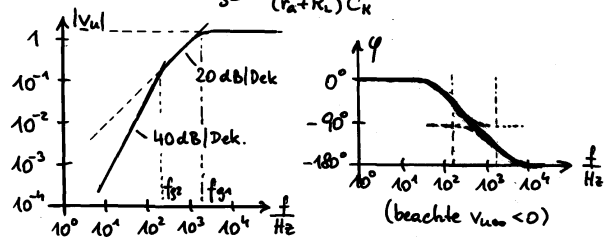 (r_a+R_L) C_K
|V_u|
1
10^-1
10^-2
10^-3
10^-4
20 dB/Dek
40 dB/Dek.
f_g2
f_g1
10^0 10^1 10^2 10^3 10^4
f/Hz
φ
0°
-90°
-180°
10^0 10^1 10^2 10^3 10^4
f/Hz
(beachte V_u∞ <0)